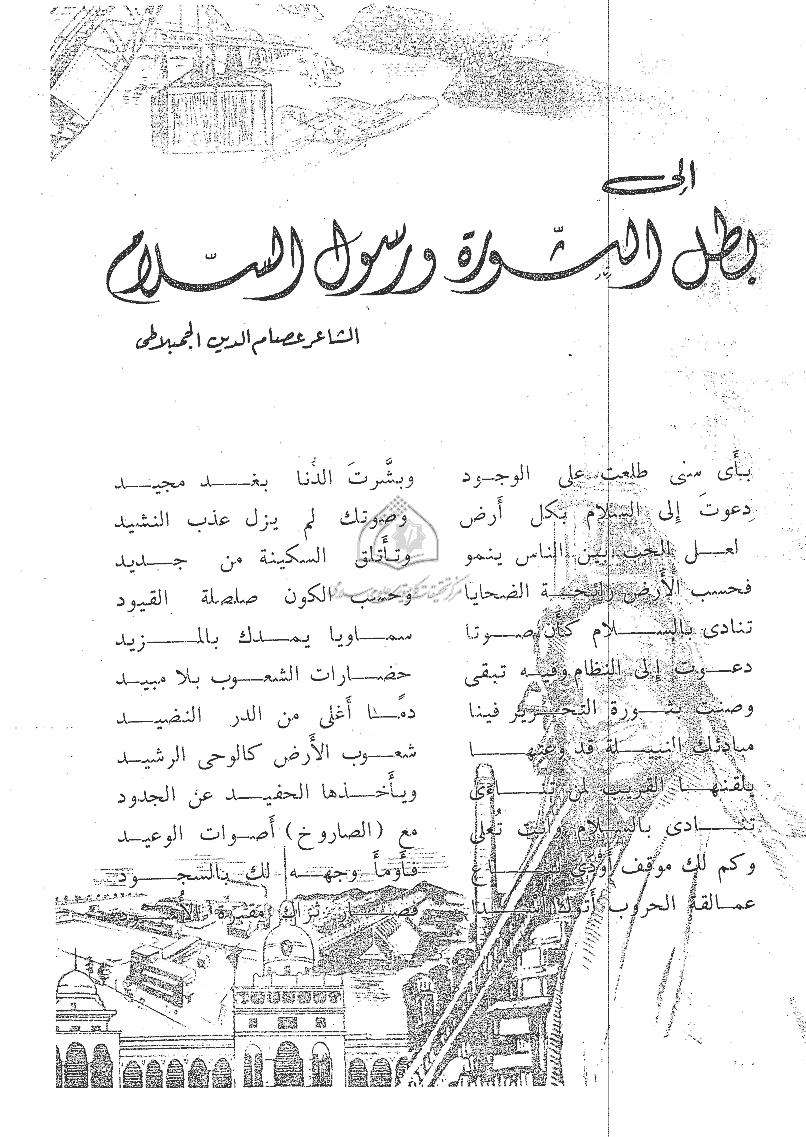 إلى
بطل الثورة ورسول السلام
الشاعر عصام الدين الجمبلاطى
بأى سنى طلعت على الوجود وبشَّرتَ الدُنا بغد مجيد
دعوتَ إلى السلام بكل أرض وصوتك لم يزل عذب النشيد
لعل الحب بين الناس ينمو وتأتلق السكينة من جديد
فحسب الأرض رائحة الضحايا وحسب الكون صلصلة القيود
تنادى بالسلام كأن صوتا سماويا يمدك بالمزيد
دعوت إلى النظام وفيه تبقى حضارات الشعوب بلا مبيد
وصنت بثورة التحرير فينا دمًا أغلى من الدر النضيد
مبادئك النبيلة قد وعتها شعوب الأرض كالوحى الرشيد
يلقنها القريب لمن تناءى ويأخذها الحفيد عن الجدود
تنادى بالسلام وأنت تُعلى مع (الصاروخ) أصوات الوعيد
وكم لك موقف أوْدى فأومأ وجهه لك بالسجود
عمالقة الحروب أتوك فصار مقبرة